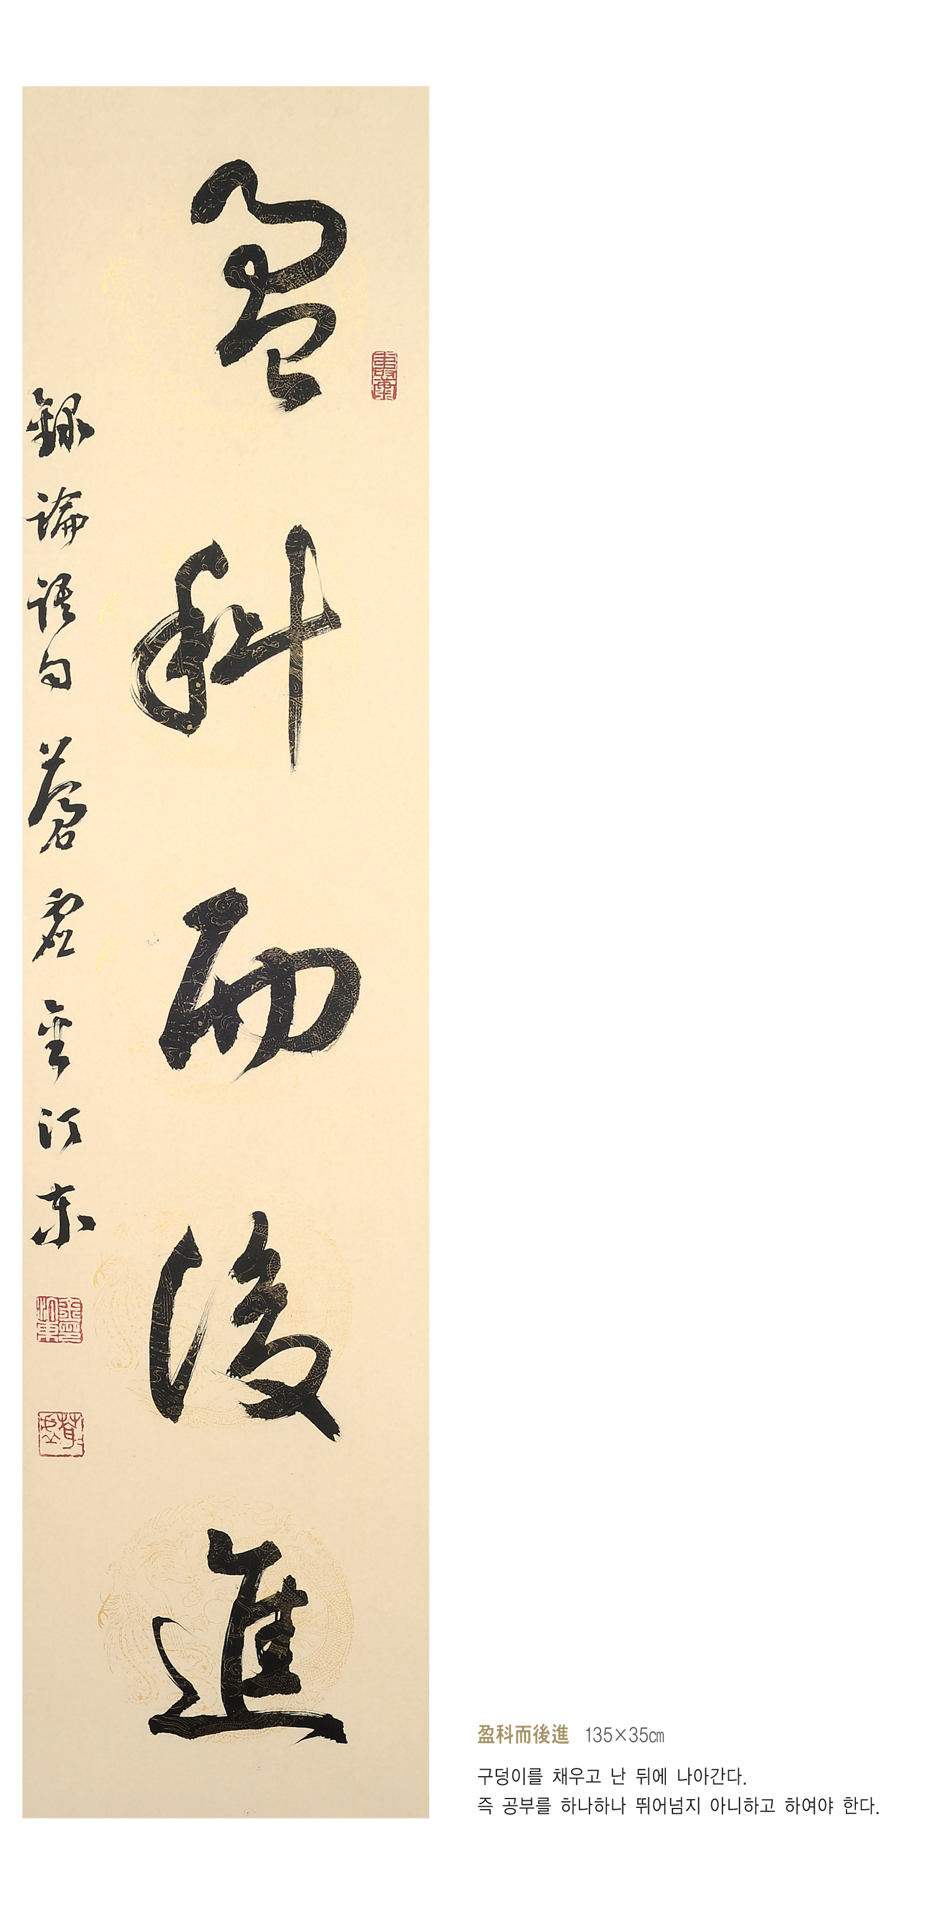 盈科而後進
錄論語句 蒼虛 金江東
盈科而後進 135×35㎝
구덩이를 채우고 난 뒤에 나아간다.
즉 공부를 하나하나 뛰어넘지 아니하고 하여야 한다.